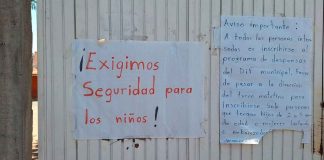 ¡Exigimos
Seguridad para
los niños!
Aviso importante:
A todas las personas intere
sadas en inscribirse al
programa de despensas
del DIF municipal. Favor
de pasar a la dirección
del turno matutino para
inscribirse. Solo personas
que tengan hijos de 2 a 5
de edad o mujeres
embarazadas